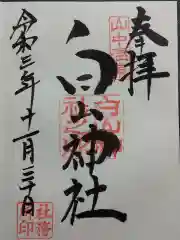 奉拝
白山神社
令和三年十一月三十日
社務
印